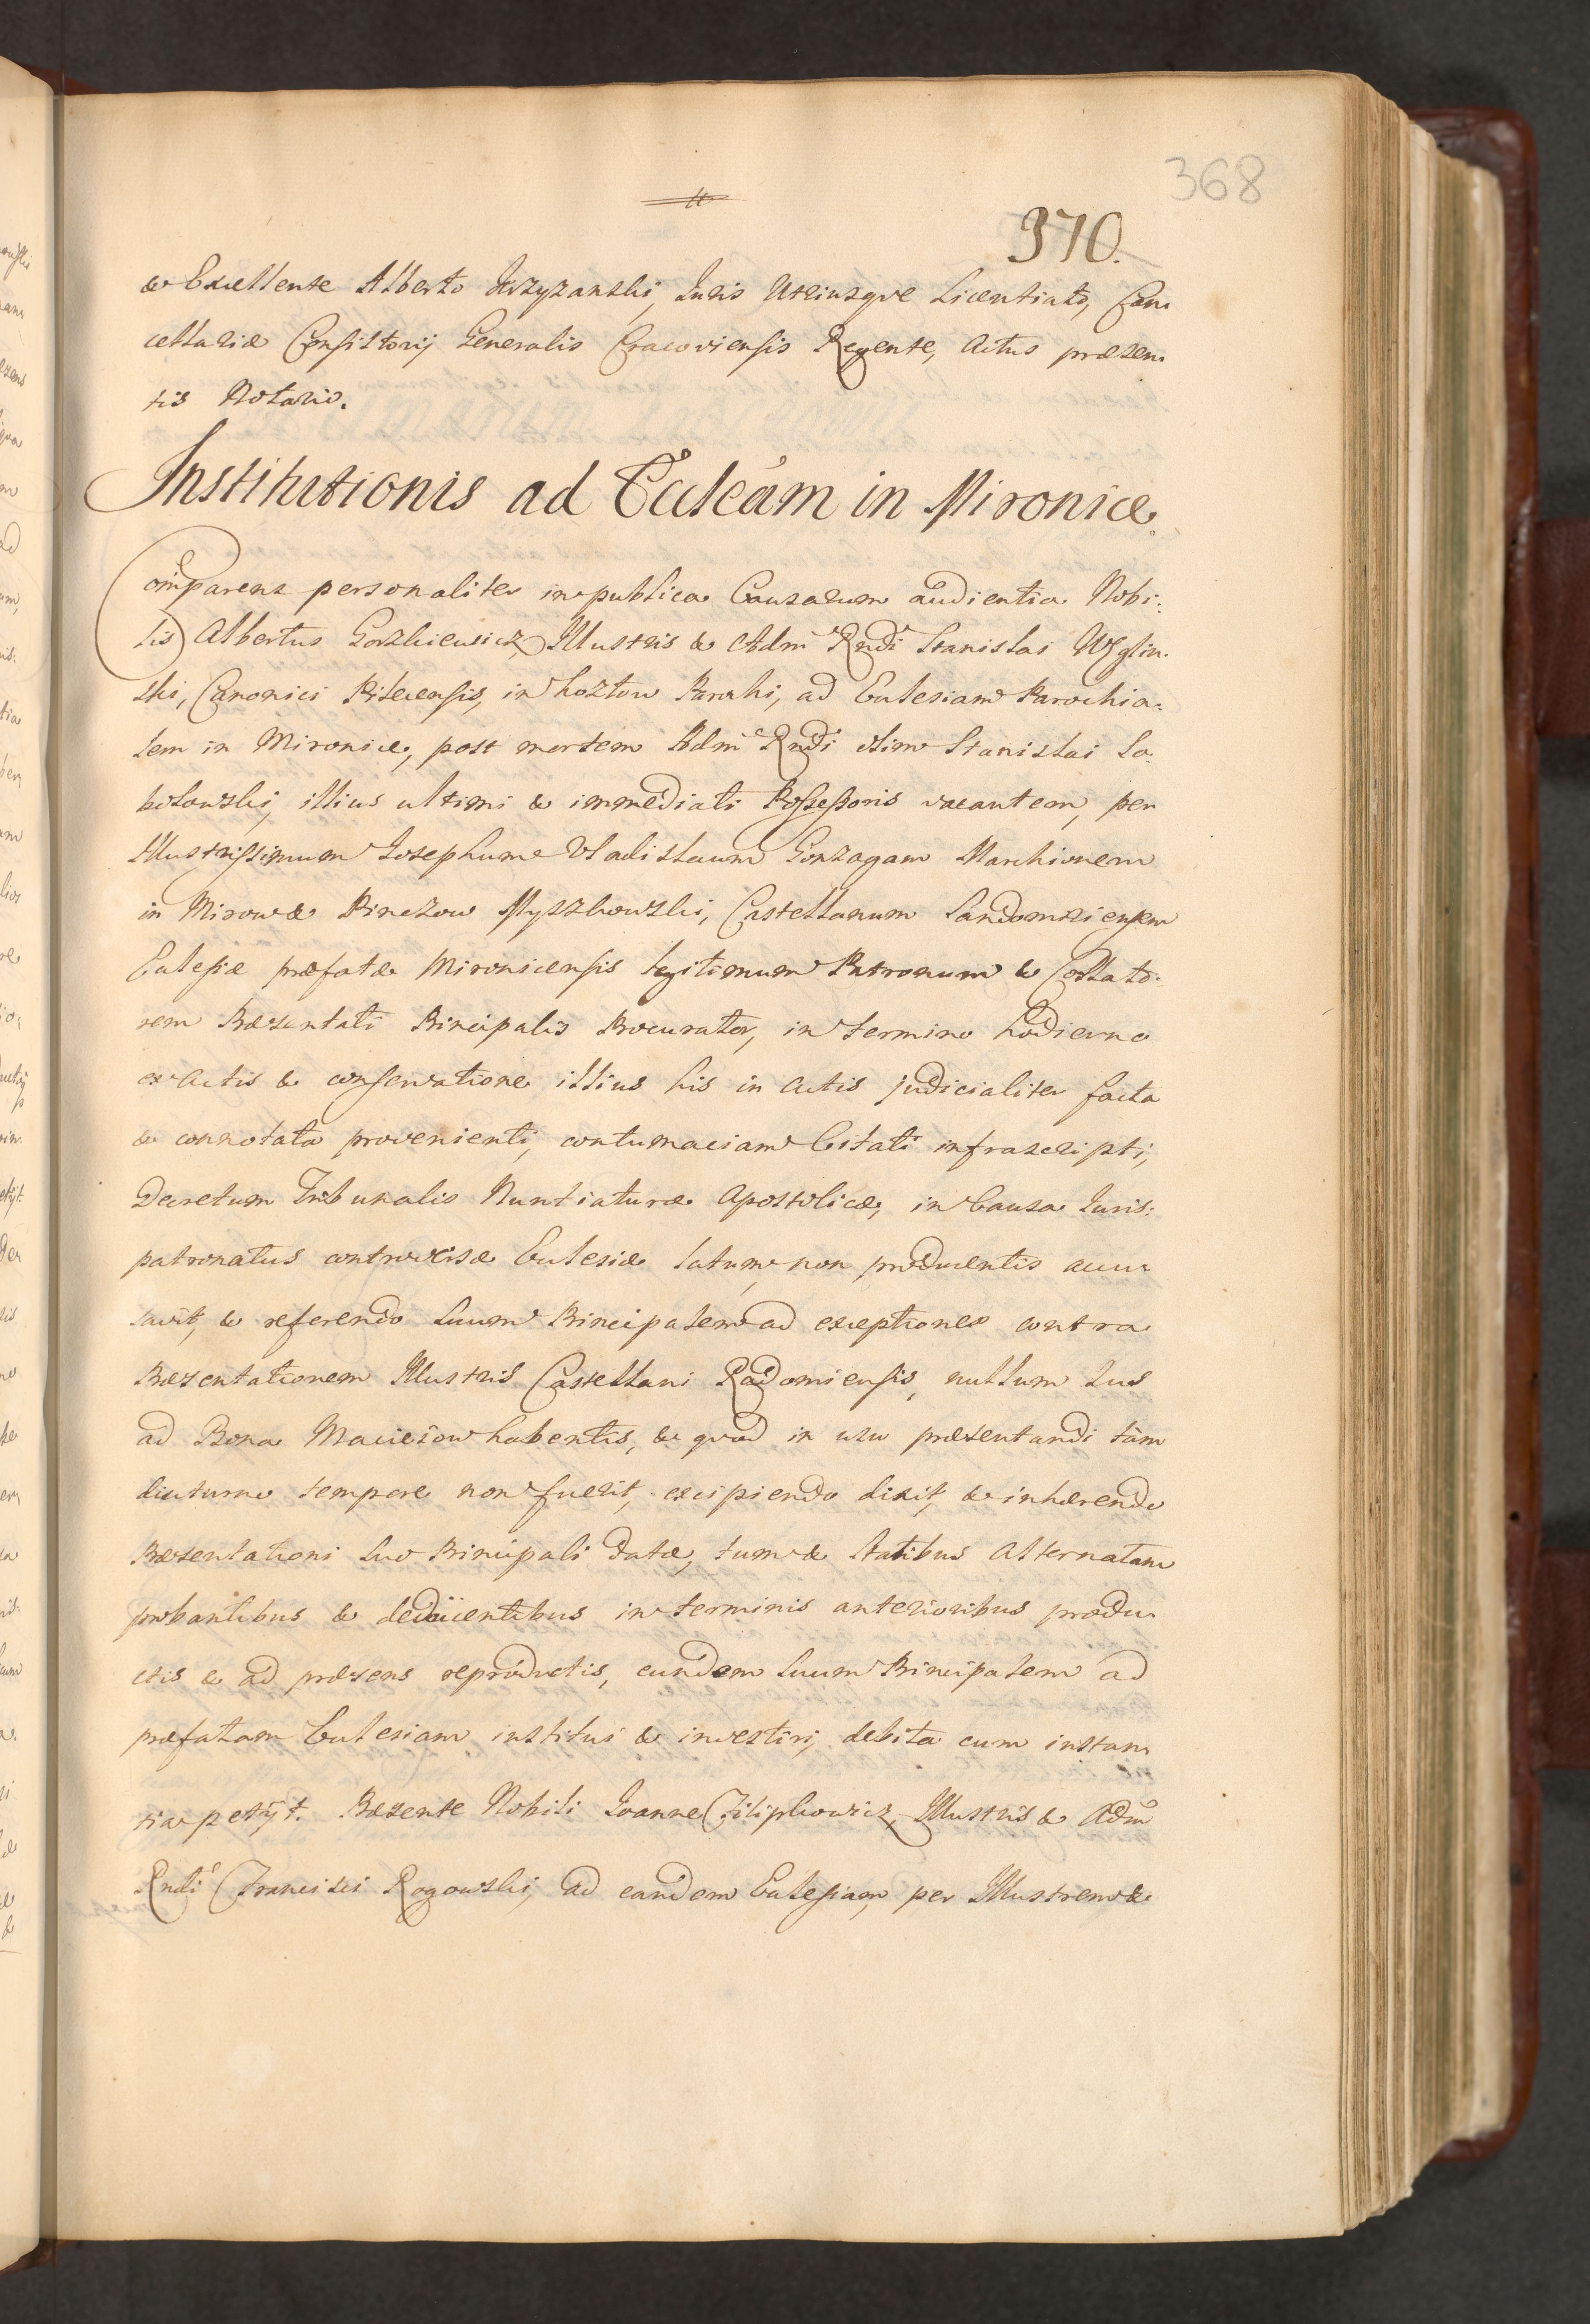 368
370.
& Excellente Alberto Krzyzanski, Juris Utriusque Licentiato, Can-
cellariæ Consistorij Generalis Cracoviensis Regente, Actus præsen-
tis Notario.
Institutionis ad Eccleām in Mironice.
Comparens personaliter in publica Causarum audientia Nobi:
lis Albertus Gorzkiewicz, Illustris & Adm Rndi Stanislai Węglin-
ski, Canonici Pilecensis, in Kozłow Parochi, ad Ecclesiam Parochia:
lem in Mironice, post mortem Adm Rndi olim Stanislai So:
kołowski, illius ultimi & immediati Possessoris vacantem, per
Illustrissimum Josephum Vladislaum Gonzagam Marchionem
in Mirow & Pinczow Myszkowski, Castellanum Sandomiriensem
Ecclesiæ præfatæ Mironicensis legitimum Patronum & Collato:
rem Præsentati Principalis Procurator, in termino hodierno
ex Actis & conservatione illius his in Actis judicialiter facta
& connotata provenienti, contumaciam Citati infrascripti,
Decretum Tribunalis Nuntiaturæ Apostolicæ, in Causa Juris:
patronatus controversæ Ecclesiæ latum, non producentis accu-
savit, & referendo Suum Principalem ad exceptiones contra
Præsentationem Illustris Castellani Radomiensis, nullum Jus
ad Bona Macieiow habentis, & quod in usu præsentandi tàm
diuturno tempore non fuerit, excipiendo dixit, & inhærendo
Præsentationi Suo Principali datæ, tum & Statibus Alternatam
probantibus & deducentibus in terminis anterioribus produ-
ctis & ad præsens reproductis, eundem Suum Principalem ad
præfatam Ecclesiam institui & investiri, debita cum instan-
tia petijt. Præsente Nobili Joanne Filipkowicz, Illustris & Adm
Rndi Francisci Rogowski, ad eandem Ecclesiam, per Illustrem &